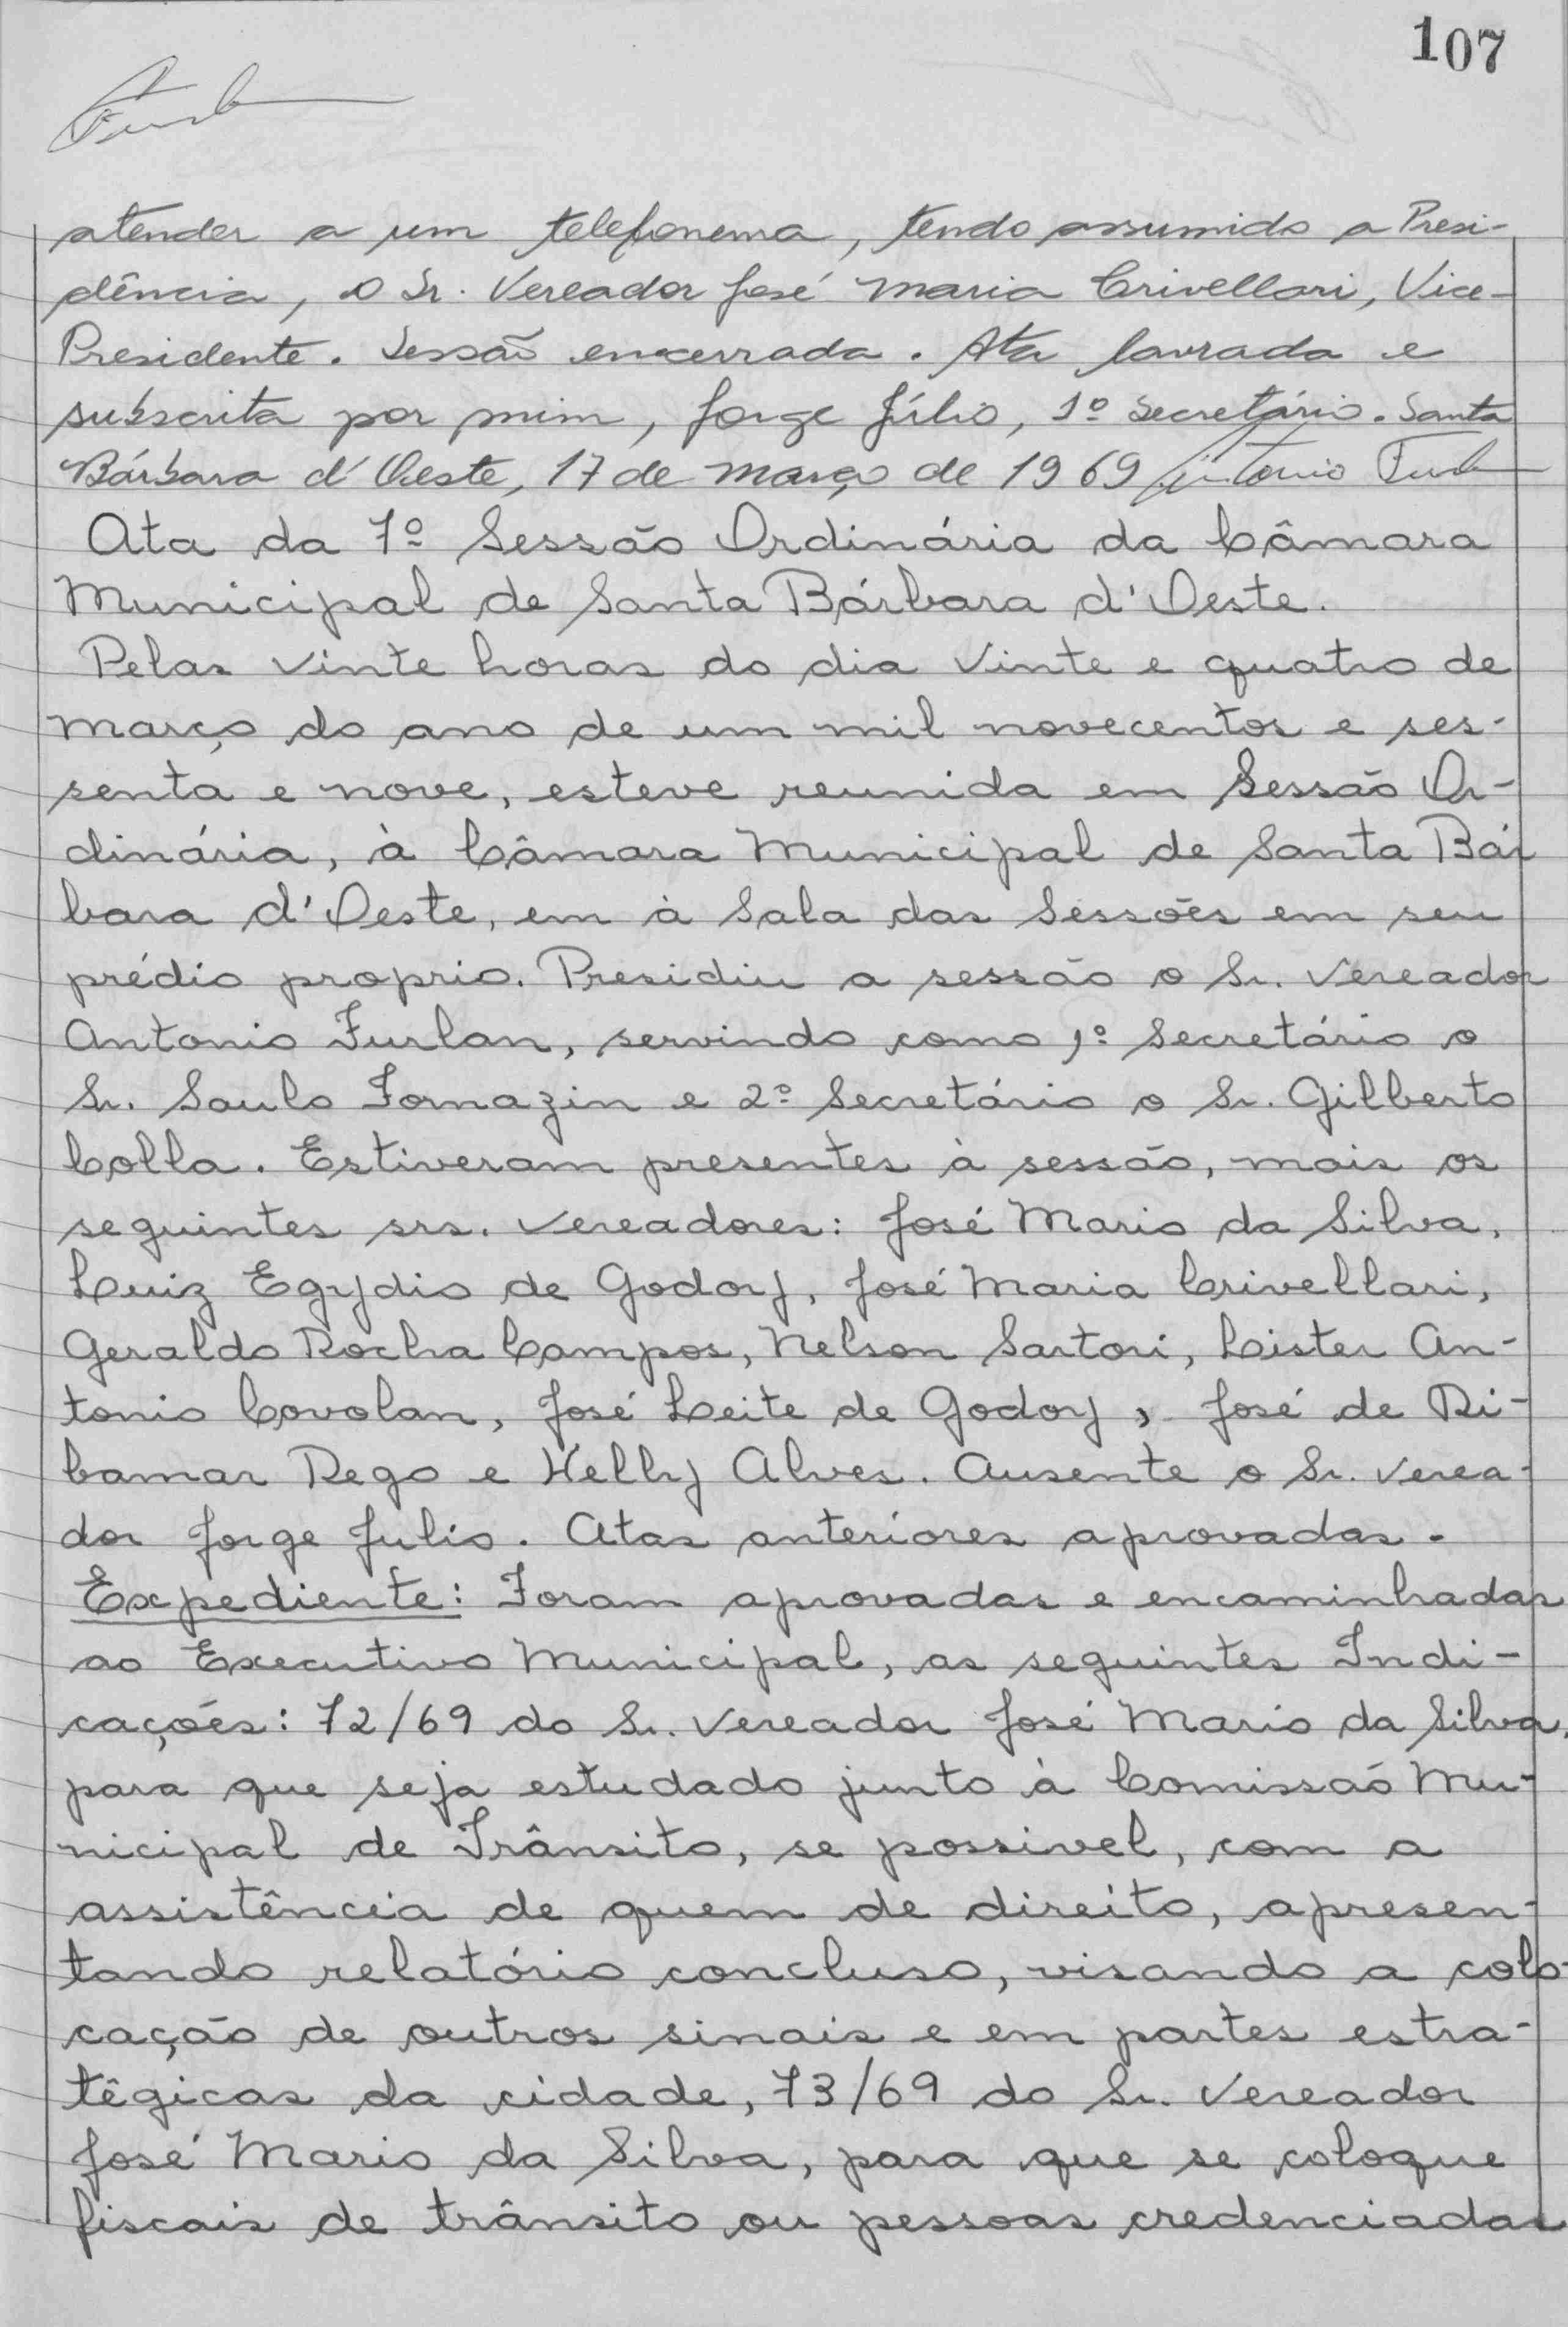 107
atender a um telefonema, tendo assumido a Presi-
dência, o Sr. Vereador José Maria Crivellari, Vice-
Presidente. Sessão encerrada. Ata lavrada e
subscrita por mim, Jorge Júlio, 1º Secretário. Santa
Bárbara d'Oeste, 17 de março de 1969 Antonio Furlan
Ata da 7º Sessão Ordinária da Câmara
Municipal de Santa Bárbara d'Oeste.
Pelas vinte horas do dia vinte e quatro de
março do ano de um mil novecentos e ses-
senta e nove, esteve reunida em Sessão Or-
dinária, à Câmara Municipal de Santa Bár
bara d'Oeste, em à Sala das Sessões em seu
prédio proprio. Presidiu a sessão o Sr. Vereador
Antonio Furlan, servindo como 1º Secretário o
Sr. Saulo Fornazin e 2º Secretário o Sr. Gilberto
Colla. Estiveram presentes à sessão, mais os
seguintes srs. vereadores: José Mario da Silva,
Luiz Egydio de Godoy, José Maria Crivellari,
Geraldo Rocha Campos, Nelson Sartori, Lister An-
tonio Covolan, José Leite de Godoy, José de Ri-
bamar Rego e Helly Alves. Ausente o Sr. Verea-
dor Jorge Julio. Atas anteriores aprovadas.
Expediente: Foram aprovadas e encaminhadas
ao Executivo Municipal, as seguintes Indi-
cações: 72/69 do Sr. Vereador José Mario da Silva,
para que seja estudado junto à Comissão Mu-
nicipal de Trânsito, se possivel, com a
assistência de quem de direito, apresen-
tando relatório concluso, visando a colo-
cação de outros sinais e em partes estra-
têgicas da cidade, 73/69 do Sr. Vereador
José Mario da Silva, para que se coloque
fiscais de trânsito ou pessoas credenciadas